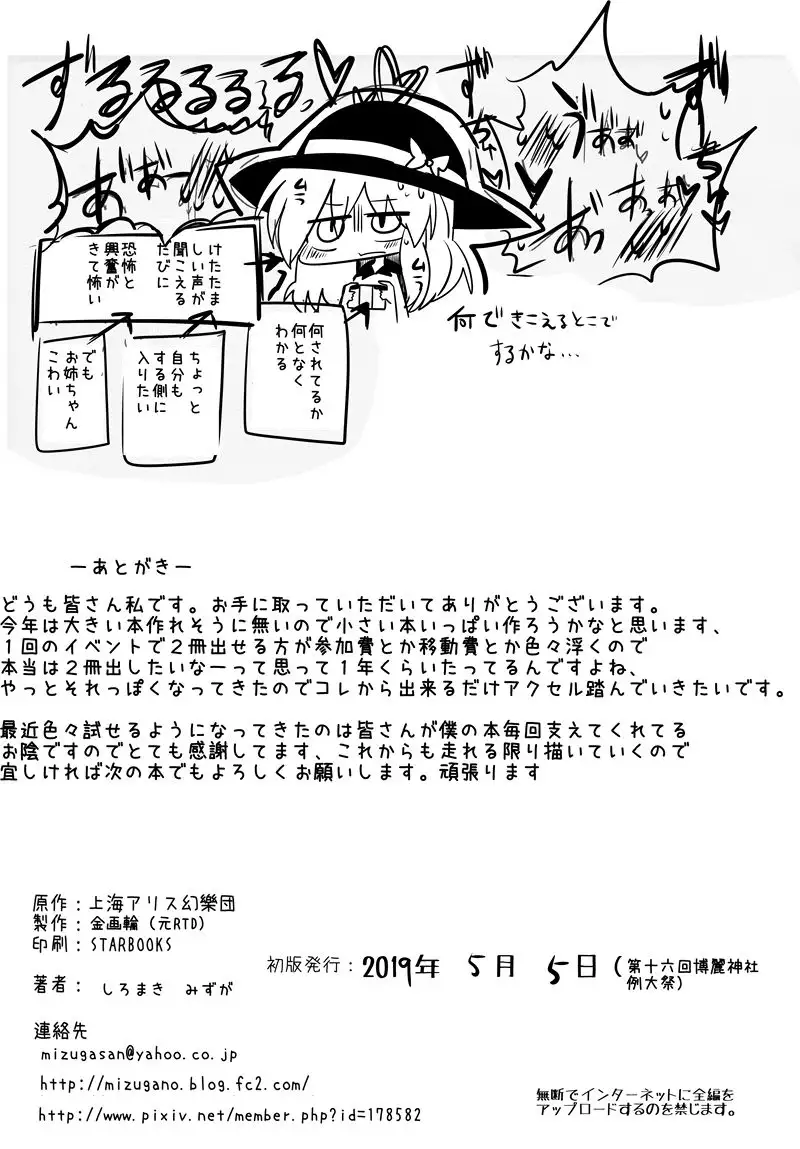 ずるるるるる、♡
ムラ
ムラ
けたたま
しい声が
聞こえる
たびに
恐怖と
興奮が
きて怖い
何されてるか
何となく
わかる
ちょっと
自分も
する側に
入りたい
でも
お姉ちゃん
こわい
何できこえるとこで
するかな…
ーあとがきー
どうも皆さん私です。お手に取っていただいてありがとうございます。
今年は大きい本作れそうに無いので小さい本いっぱい作ろうかなと思います、
1回のイベントで2冊出せる方が参加費とか移動費とか色々浮くので
本当は2冊出したいなーって思って1年くらいたってるんですよね、
やっとそれっぽくなってきたのでコレから出来るだけアクセル踏んでいきたいです。
最近色々試せるようになってきたのは皆さんが僕の本毎回支えてくれてる
お陰ですのでとても感謝してます、これからも走れる限り描いていくので
宜しければ次の本でもよろしくお願いします。頑張ります
原作：上海アリス幻樂団
製作：金画輪（元RTD）
印刷：STARBOOKS
著者： しろまき みずが
初版発行：2019年 5月 5日（第十六回博麗神社
例大祭）
連絡先
mizugasan@yahoo.co.jp
http://mizugano.blog.fc2.com/
http://www.pixiv.net/member.php?id=178582
無断でインターネットに全編を
アップロードするのを禁じます。